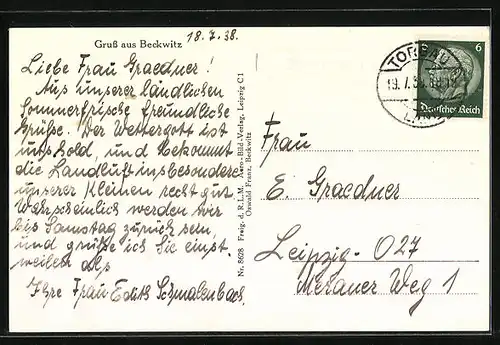 Gruß aus Beckwitz 18.7.38.
Liebe Frau Graedner!
Aus unserer ländlichen
Sommerfrische freundliche
Grüße. Der Wettergott ist
uns hold, und bekommt
die Landluft insbesondere
unserer Kleinen recht gut.
Wahrscheinlich werden wir
bis Samstag zurück sein,
und grüße ich Sie einst-
weilen als
Ihre Frau Edith Schmalenbach.
Nr. 8628 Freig. d. R.L.M. Aero-Bild-Verlag, Leipzig C1
Oswald Franz, Beckwitz
TORGAU
19.7.38
LAND
6
Deutsches Reich
Frau
E. Graedner
Leipzig-O27
Meraner Weg 1